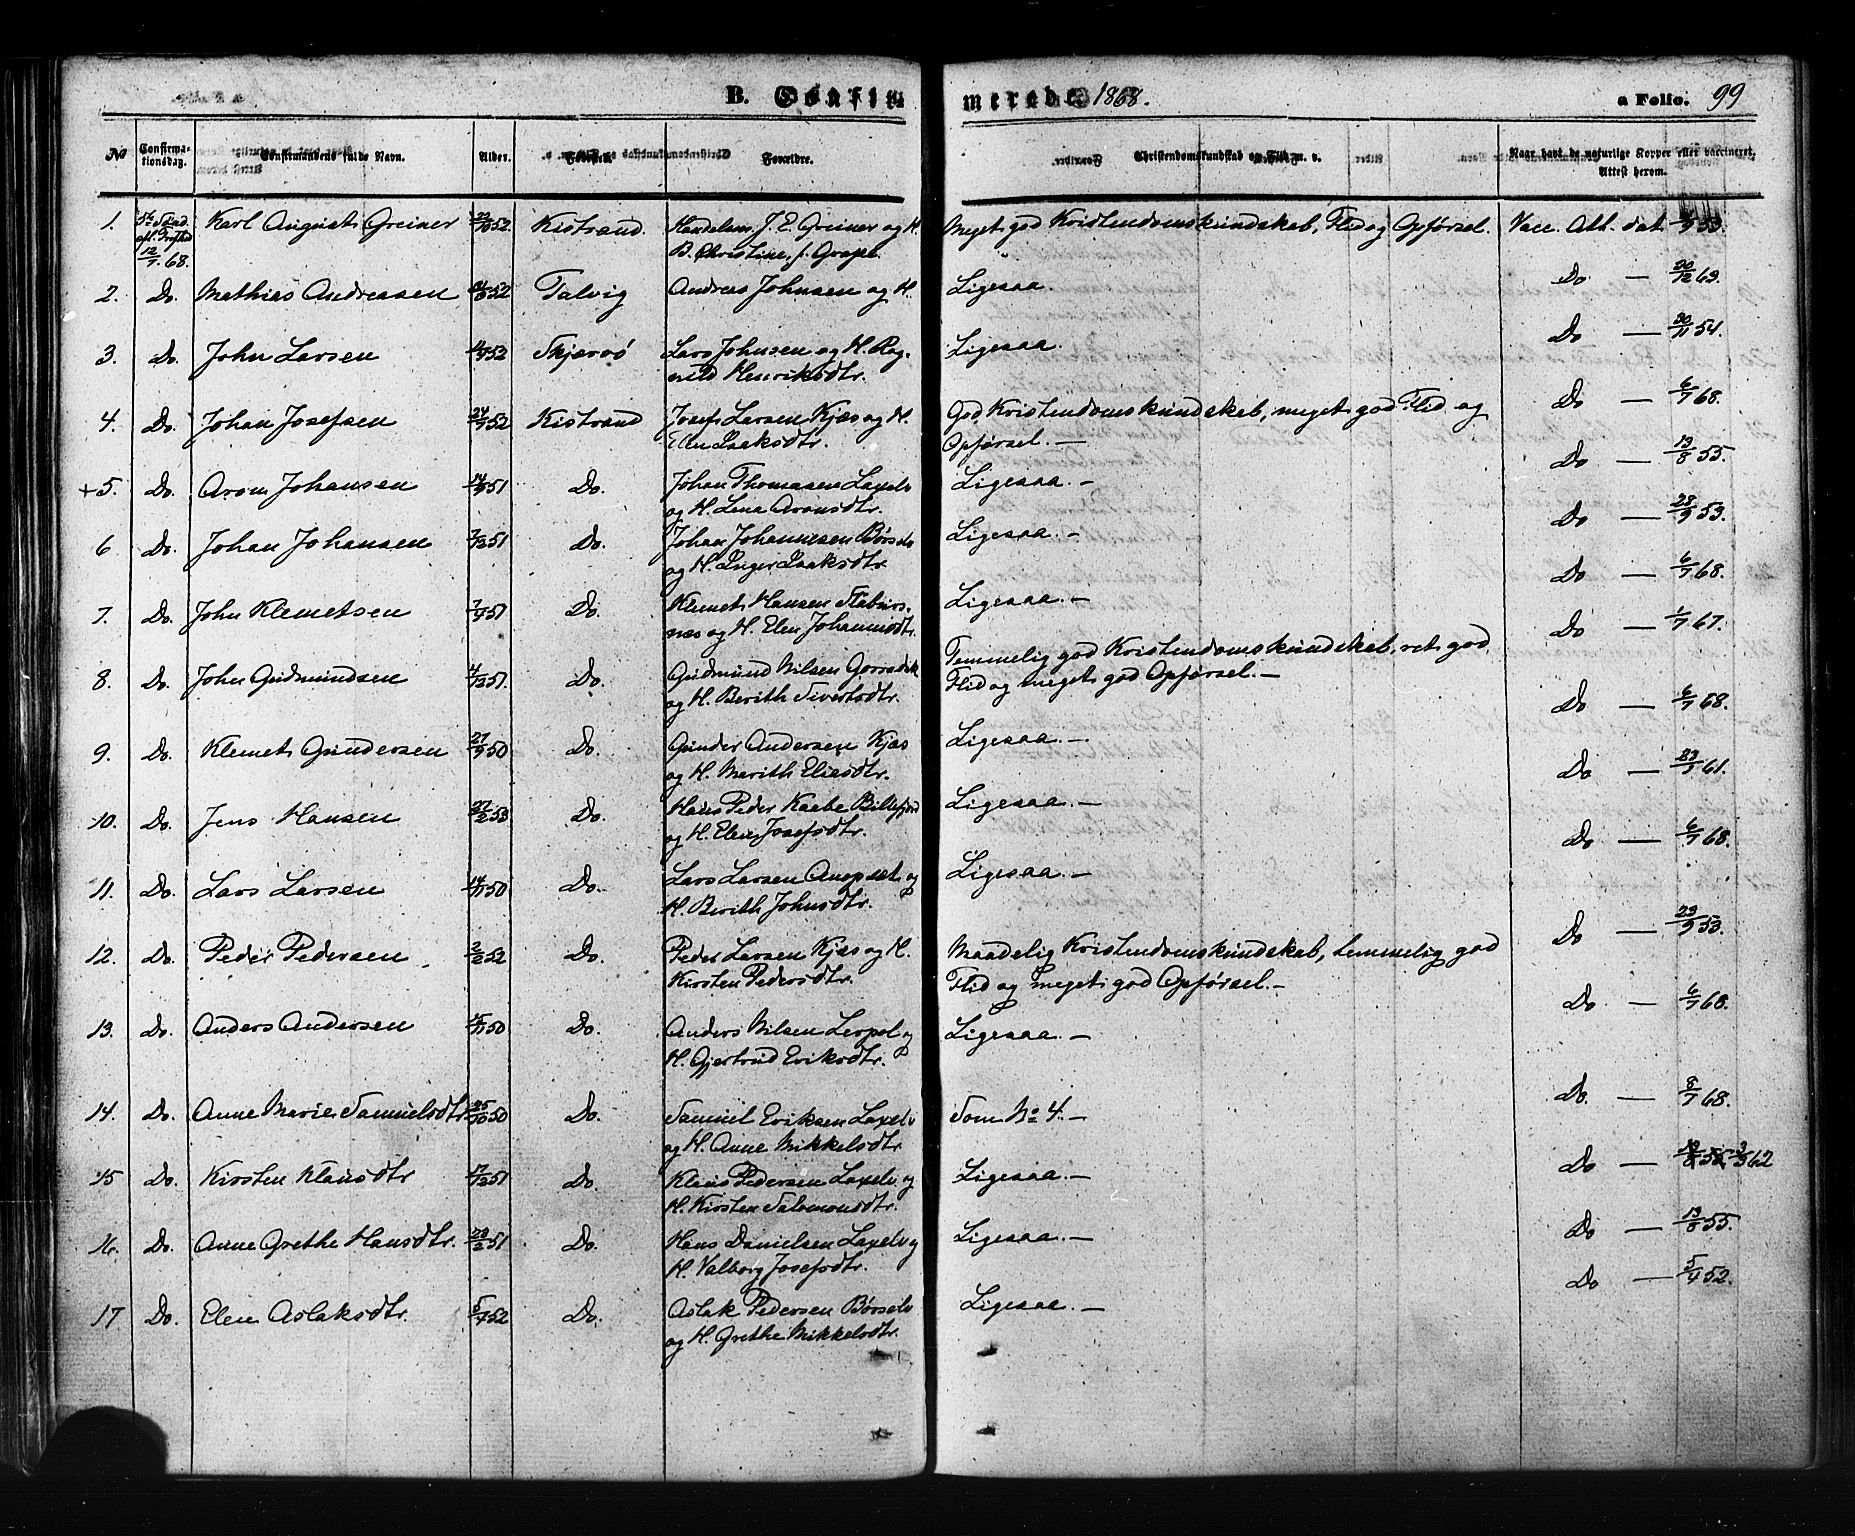 B. Confirmerede 1868. a Folio. 99
No
Confirmationsdag.
Confirmandens fulde Navn.
Alder.
Fødested.
Forældre.
Christendomskundskab og Flid m. v.
Naar havt de naturlige Kopper eller vaccineret, Attest herom.
1. 12/7. 68. Karl August Greiner 52 Kistrand. Handelsm. J. E. Greiner og H. Meget god Kristendomskundskab, Flid og Opførsel. Vacc. Att. dat. 53.
B. Christine, f. Grape.
2. Do. Mathias Andreasen 52 Talvig Andreas Johnsen og H. Ligesaa. Do —
3. Do. John Larsen 52 Skjærvö Lars Johnsen og H. Rag- Ligesaa. Do — 30/11 54.
nild Henriksdtr.
4. Do. Johan Josefsen 24/9 52 Kistrand Josef Larsen Kjæs og H. God Kristendomskundskab, meget god Flid og Do — 6/7 68.
Elen Isaksdtr. Opførsel. —
+ 5. Do. Aron Johansen 51 Do. Johan Thomasen Laxelv Ligesaa. — Do — 13/8 55.
og H. Lena Aronsdtr.
6 Do. Johan Johansen 51 Do. Johan Johannesen Børselv Ligesaa. — Do — 28/9 53.
og H. Inger Isaksdtr.
7. Do. John Klemetsen 51 Do. Klemet Hansen Staburs- Ligesaa. — Do — 6/7 68.
næs og H. Elen Johannisdtr.
8. Do. John Gudmundsen 51. Do. Gudmund Nilsen Temmelig god Kristendomskundskab, ret god Do — 1/7 67.
og H. Berith Sivertsdtr. Flid og meget god Opførsel. —
9. Do. Klemet Gundersen 27/9 50 Do. Gunder Andersen Kjæs Ligesaa. — Do — 6/7 68.
og H. Marith Eliesdtr.
10. Do. Jens Hansen 27/2 53 Do. Hans Peder Kaebe Billefjord Ligesaa. — Do — 61.
og H. Elen Josefsdtr.
11. Do. Lars Larsen 50 Do. Lars Larsen og Ligesaa. — Do — 6/7 68.
H. Berith Johnsdtr.
12. Do. Peder Pedersen 2/2 52 Do. Peder Larsen Kjæs og H. Maadelig Kristendomskundskab, temmelig god Do — 53.
Kirsten Pedersdtr. Flid og meget god Opførsel. —
13. Do. Anders Andersen 50 Do. Anders Nilsen Lerpol og Ligesaa. — Do — 6/7 68.
H. Gjertrud Eriksdtr.
14. Do. Anne Marie Samuelsdtr. 25/10 50 Do. Samuel Eriksen Laxelv Som No 4. — Do. — 8/7 68.
og H. Anne Mikkelsdtr.
15 Do. Kirsten Klausdtr 17/12 51 Do. Klaus Pedersen Laxelv og Ligesaa. — Do — 62
H. Kirsten Salomonsdtr.
16. Do. Anne Grethe Hansdtr. 51 Do. Hans Danielsen Laxelv og Ligesaa. — Do — 13/8 55.
H. Valborg Josefsdtr.
17 Do. Elen Aslaksdtr. 5/4 52 Do. Aslak Pedersen Børselv Ligesaa. — Do — 5/4 52.
og H. Grethe Mikkelsdtr.